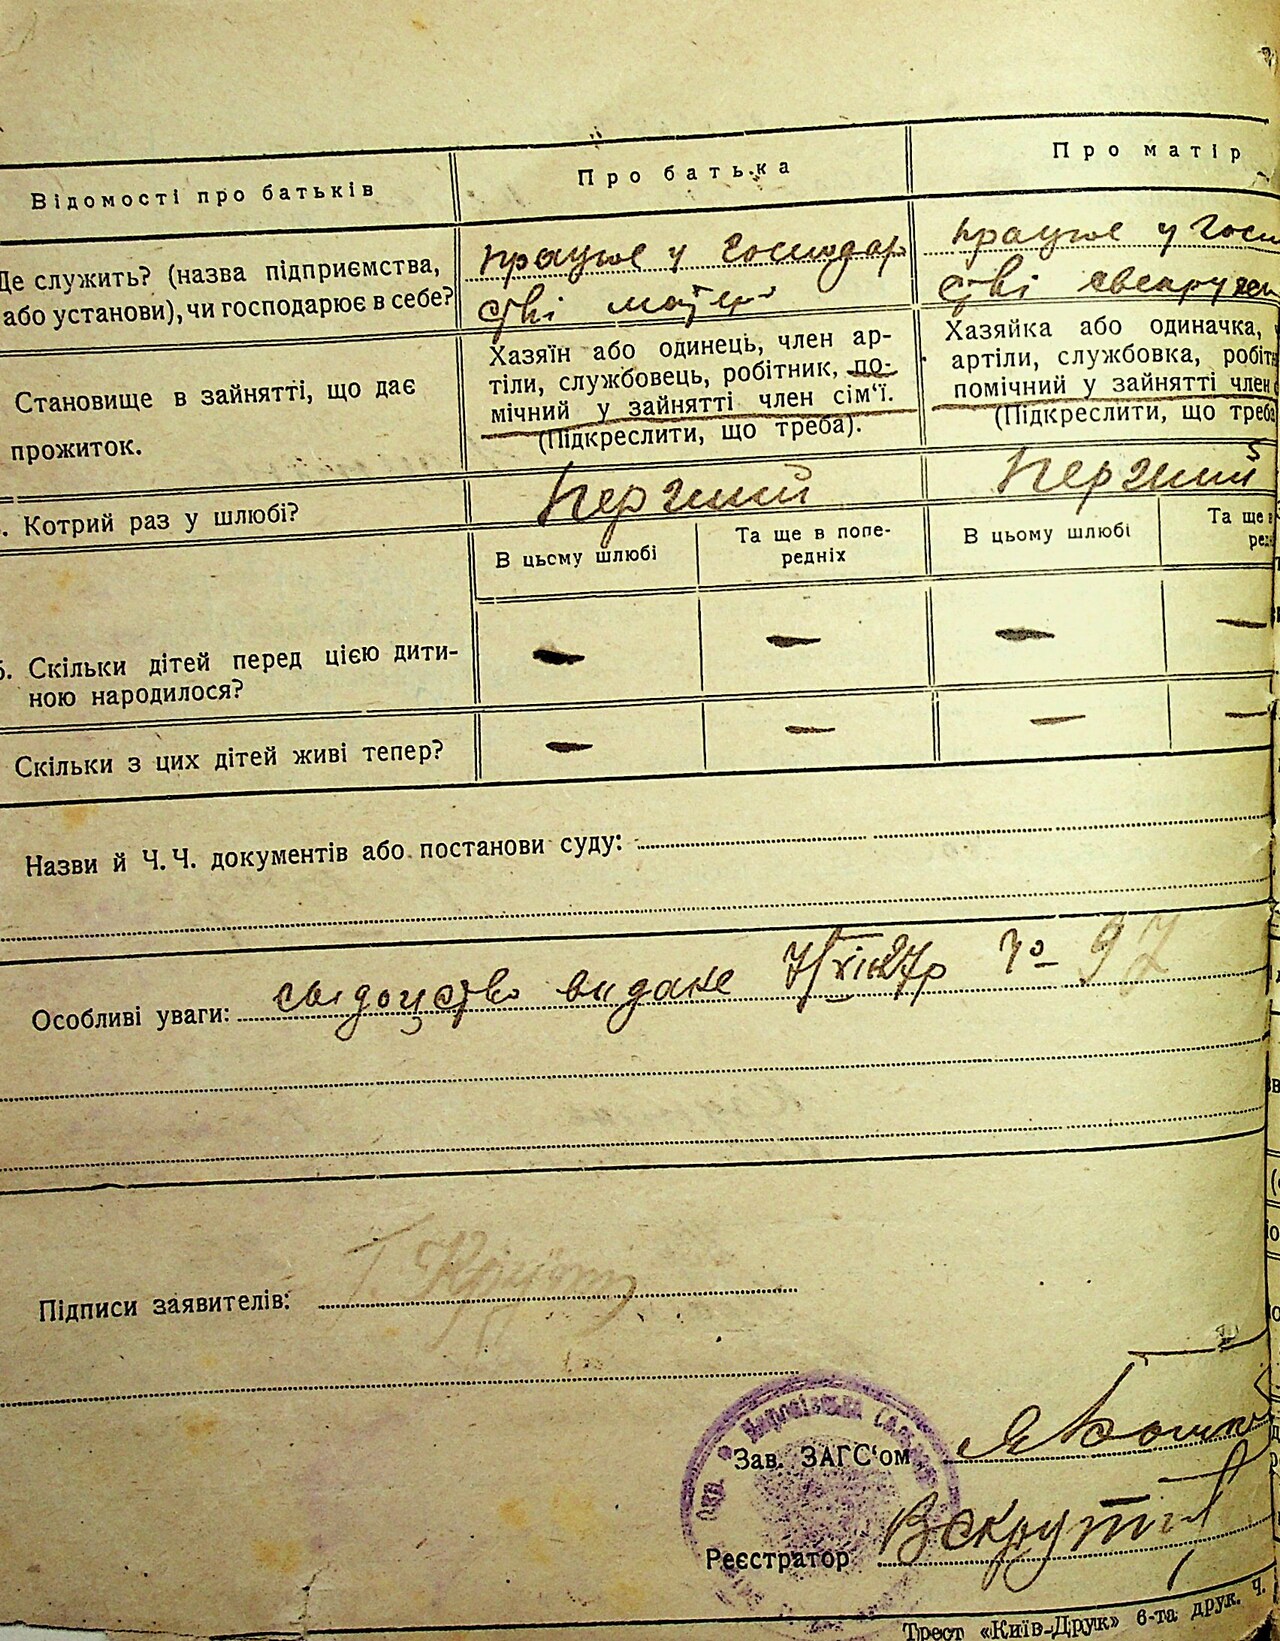 Відомості про батьків
Про батька
Про матір
Де служить? (назва підприємства,
або установи), чи господарює в себе?
працює у господар
стві матері
працює у госп
стві свекрухи
Становище в зайнятті, що дає
прожиток.
Хазяїн або одинець, член ар-
тіли, службовець, робітник, по-
мічний у зайнятті член сім'ї.
(Підкреслити, що треба).
Хазяйка або одиначка,
артіли, службовка, робітн
помічний у зайнятті член
(Підкреслити, що треба
Котрий раз у шлюбі?
перший
перший
В цьому шлюбі
Та ще в попе-
редніх
В цьому шлюбі
Та ще в
редн
Скільки дітей перед цією дити-
ною народилося?
Скільки з цих дітей живі тепер?
Назви й Ч. Ч. документів або постанови суду:
Особливі уваги: свідоцтво видане 7/XII 27р № 97
Підписи заявителів:
Зав. ЗАГС'ом
Реєстратор
Трест «Київ-Друк» 6-та друк. Ч.